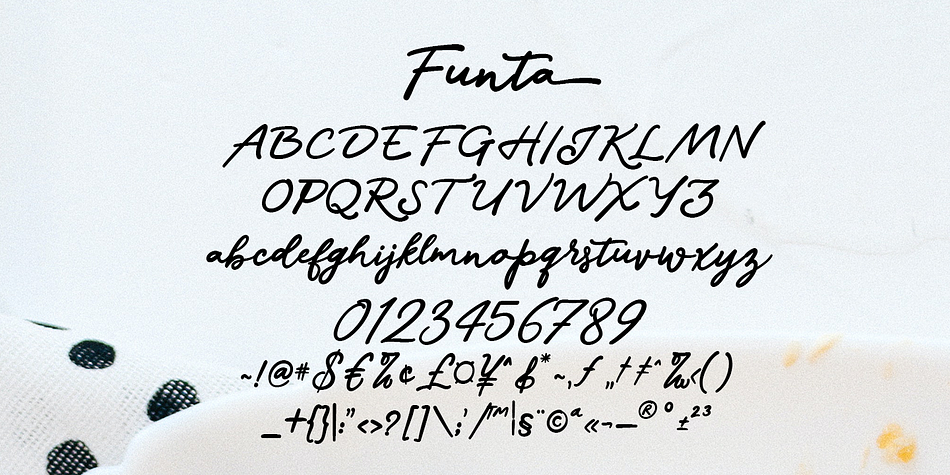 Funta
ABCDEFGHIJKLMN
OPQRSTUVWXYZ
abcdefghijklmnopqrstuvwxyz
0123456789
~!@#$€%¢£¤¥^&*~‚ƒ„†‡ˆ‰‹()
_+{}|:"<>?[]\;'/™¦§¨©ª«¬—®°±²³